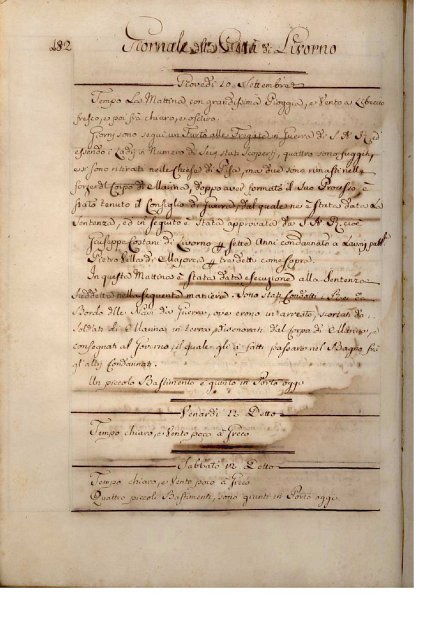 182 Giornale della Città di Livorno
Giovedi 10 Settembre
Tempo La Mattina con grandissima Pioggia, e Vento a Libeccio
fresco, e poi frà chiaro, e oscuro.
Giorni sono segui un Furto alle Fregate in Guerra di S A R, ed
essendo i Ladri in Numero di Sei, stati scoperti, quattro sono fuggiti,
e si sono ritirati nelle Chiese di Pisa, mà due sono rimasti nelle
forze del Corpo di Marina, doppo aver formato il Suo Processo, è
stato tenuto il Consiglio di Guerra, dal quale ne è stata data La
Sentenza, ed in seguito è Stata approvata da S A R, cioe
Giuseppe Costani di Livorno sette Anni condannato a
Pietro Villardi Majorca tredetti come sopra
In questa Mattina è stata data esecuzione alla Sentenza
suddetta nella seguente maniera. Sono stati Condotti i
Bordo delle Navi da Guerra, ove erono in arresto, scortati da
Soldati di Marina in terra, disonorati dal Corpo di Marina, e
consegnati al il quale gli à fatti passare nel Bagno frà
gl'altri Condannati.
Un piccolo Bastimento è giunto in Porto oggi
Venardi 11 Detto
Tempo chiaro, e Vento poco à Greco
Sabbato 12 Detto
Tempo chiaro, e Vento poco à Greco
Quattro piccoli Bastimenti, sono giunti in Porto oggi.